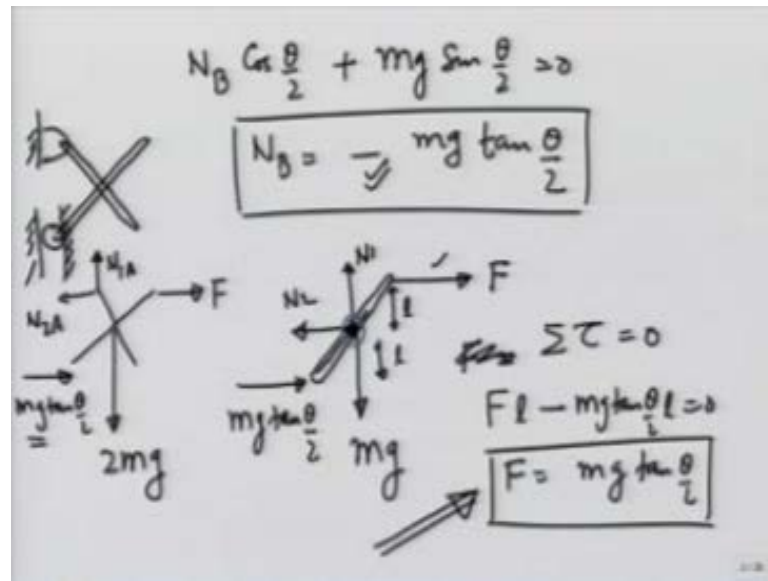 N_B Cos θ/2 + mg Sin θ/2 = 0
N_B = - mg tan θ/2
N_1A
N_2A
F
mg tan θ/2 =
2mg
N1
N2
F
l
l
mg tan θ/2
mg
Σ τ = 0
F l - mg tan θ/2 l = 0
F = mg tan θ/2